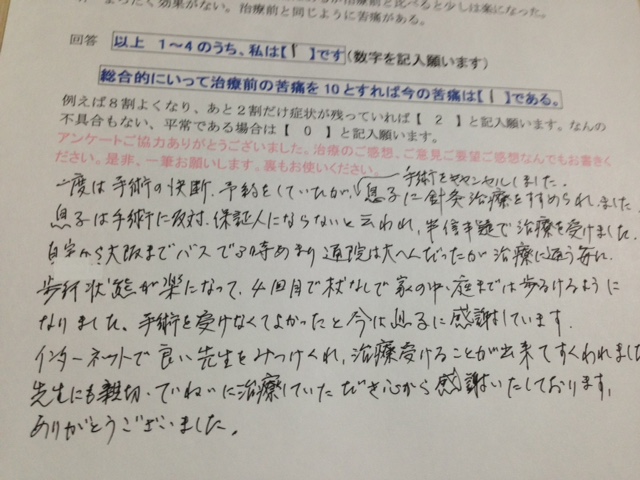 。まったく効果がない。治療前と同じように苦痛がある。
回答 以上 1～4のうち、私は【 1 】です (数字を記入願います)
総合的にいって治療前の苦痛を10とすれば今の苦痛は【 1 】である。
例えば8割よくなり、あと2割だけ症状が残っていれば【 2 】と記入願います。なんの
不具合もない、平常である場合は【 0 】と記入願います。
アンケートご協力ありがとうございました。治療のご感想、ご意見ご要望ご感想なんでもお書きく
ださい。是非、一筆お願いします。裏もお使いください。
手術をキャンセルしました。
一度は手術の決断、予約をしていたが、息子に針灸治療をすすめられました
息子は手術に反対、保証人にならないと云われ、半信半疑で治療を受けました。
自宅から大阪までバスで 時あまり通院は大へんだったが治療に通う毎に
歩行状態が楽になって、4回目で杖なしで家の中、庭までは歩るけるように
なりました、手術を受けなくてよかったと今は息子に感謝しています.
インターネットで良い先生をみつけくれ、治療受けることが出来てすくわれました
先生にも親切、ていねいに治療していただき心から感謝いたしております,
ありがとうございました。